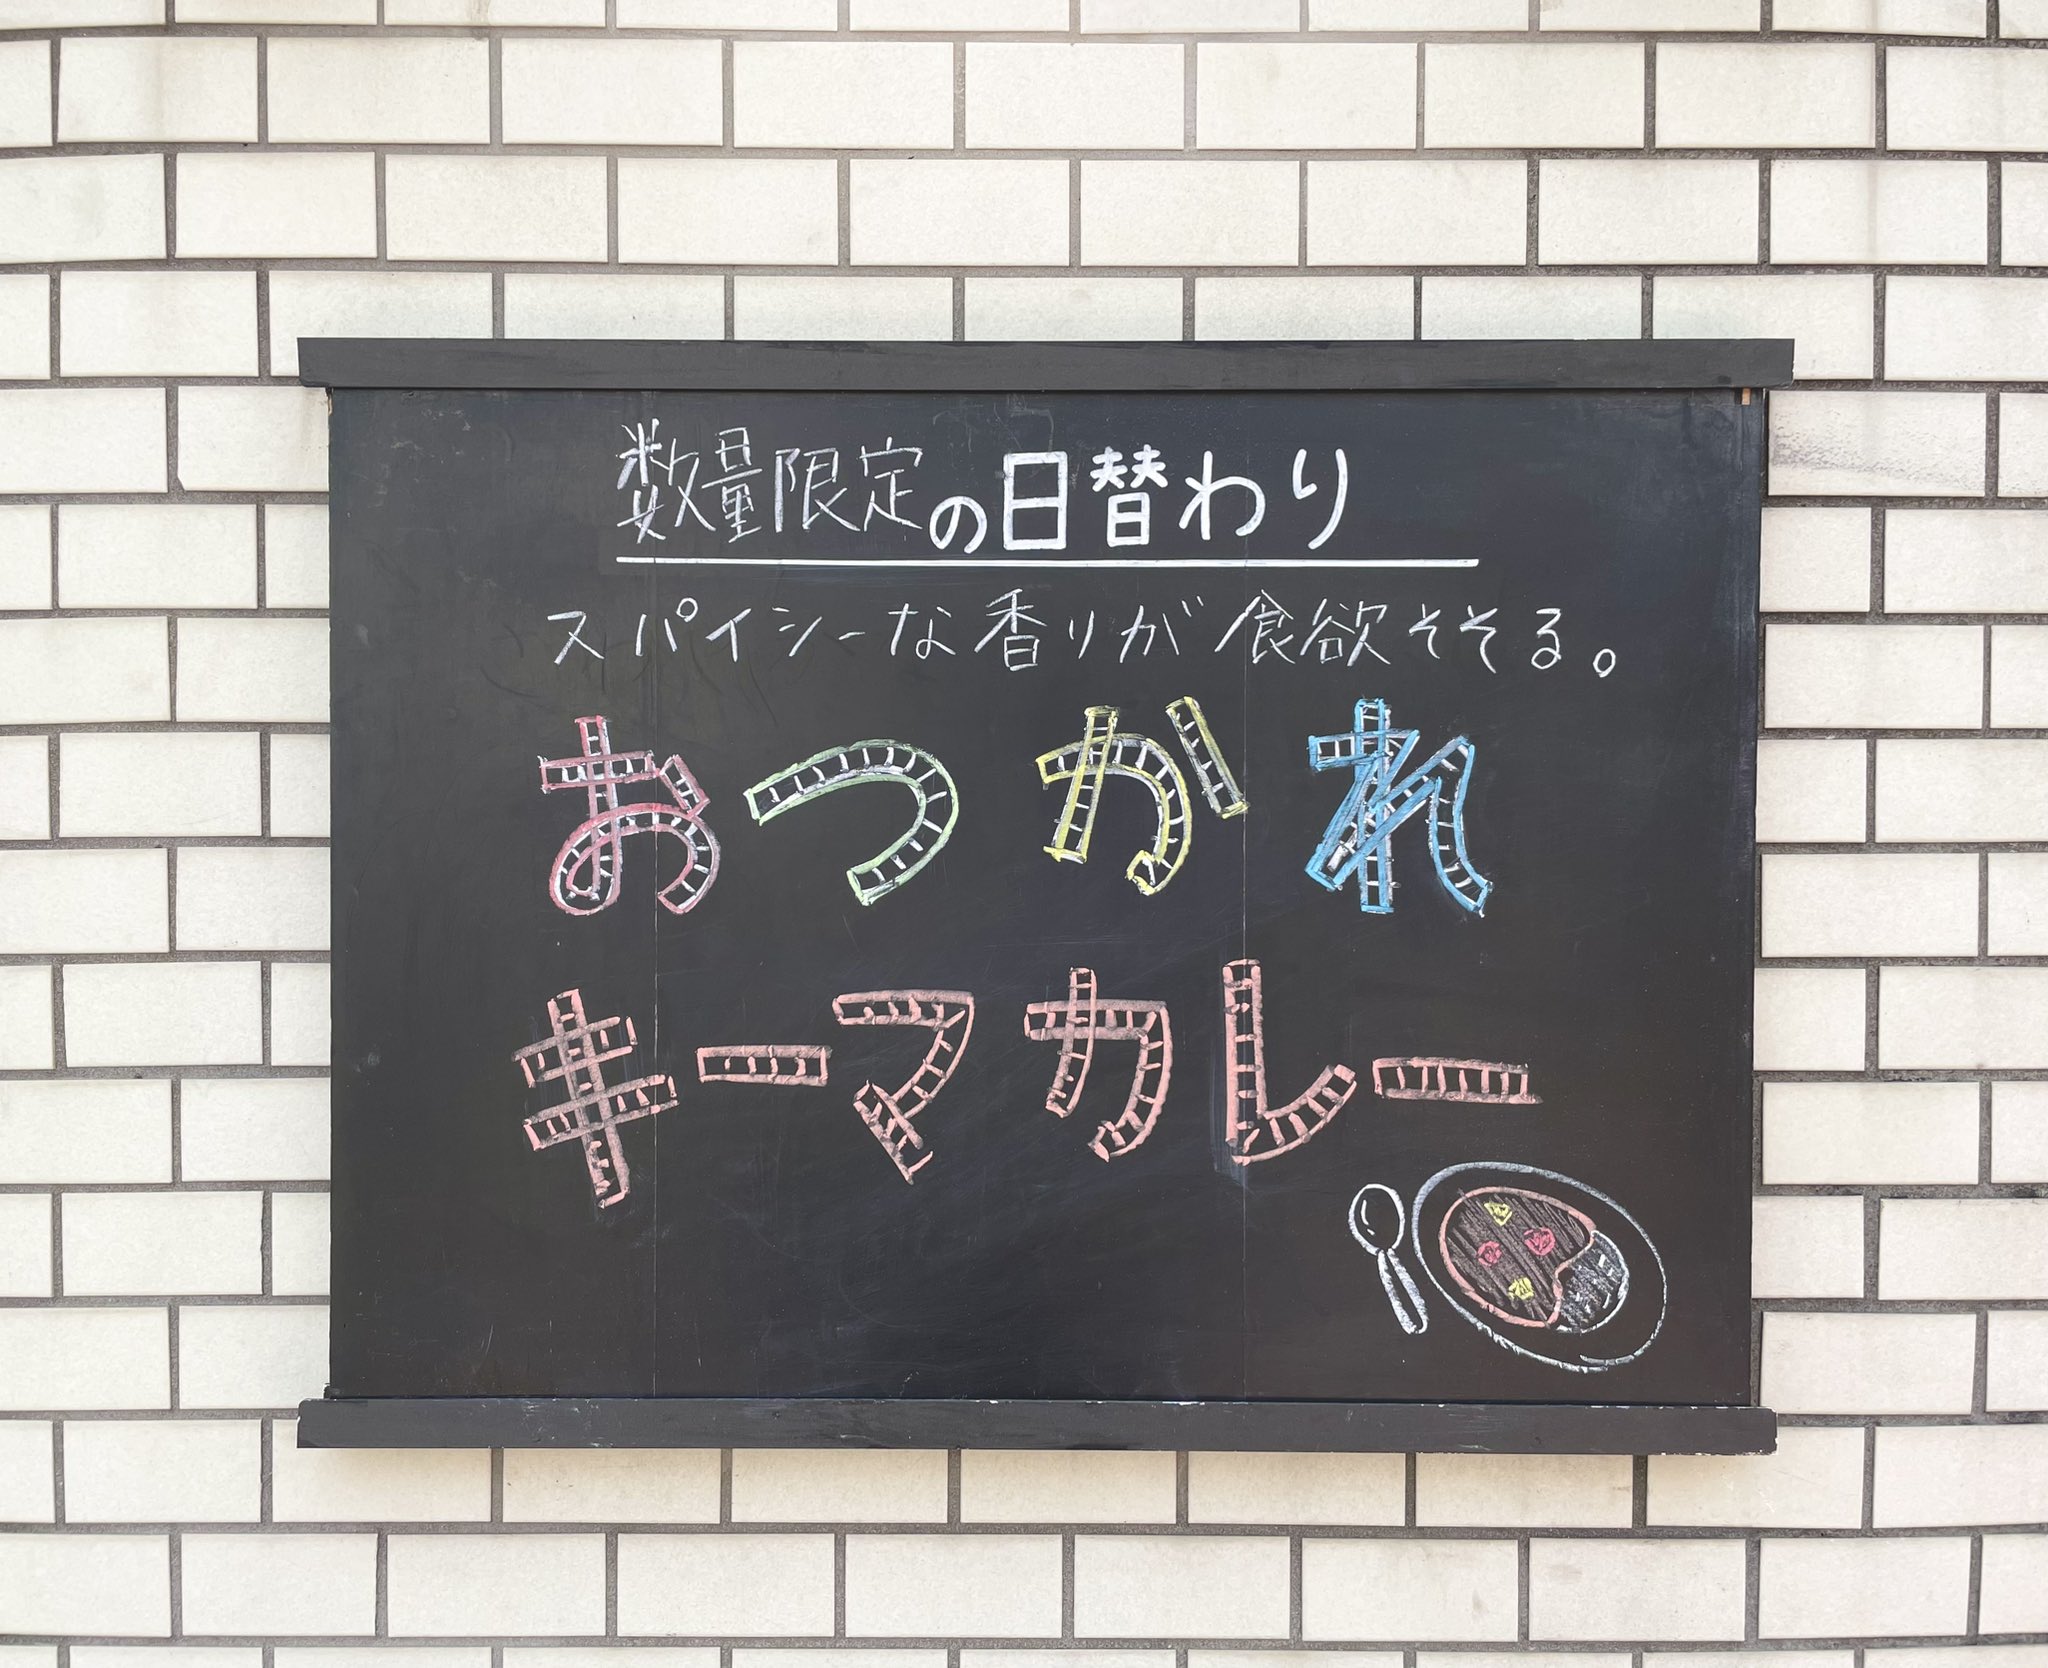 数量限定の日替わり
スパイシーな香りが食欲そそる。
おつかれ
キーマカレー